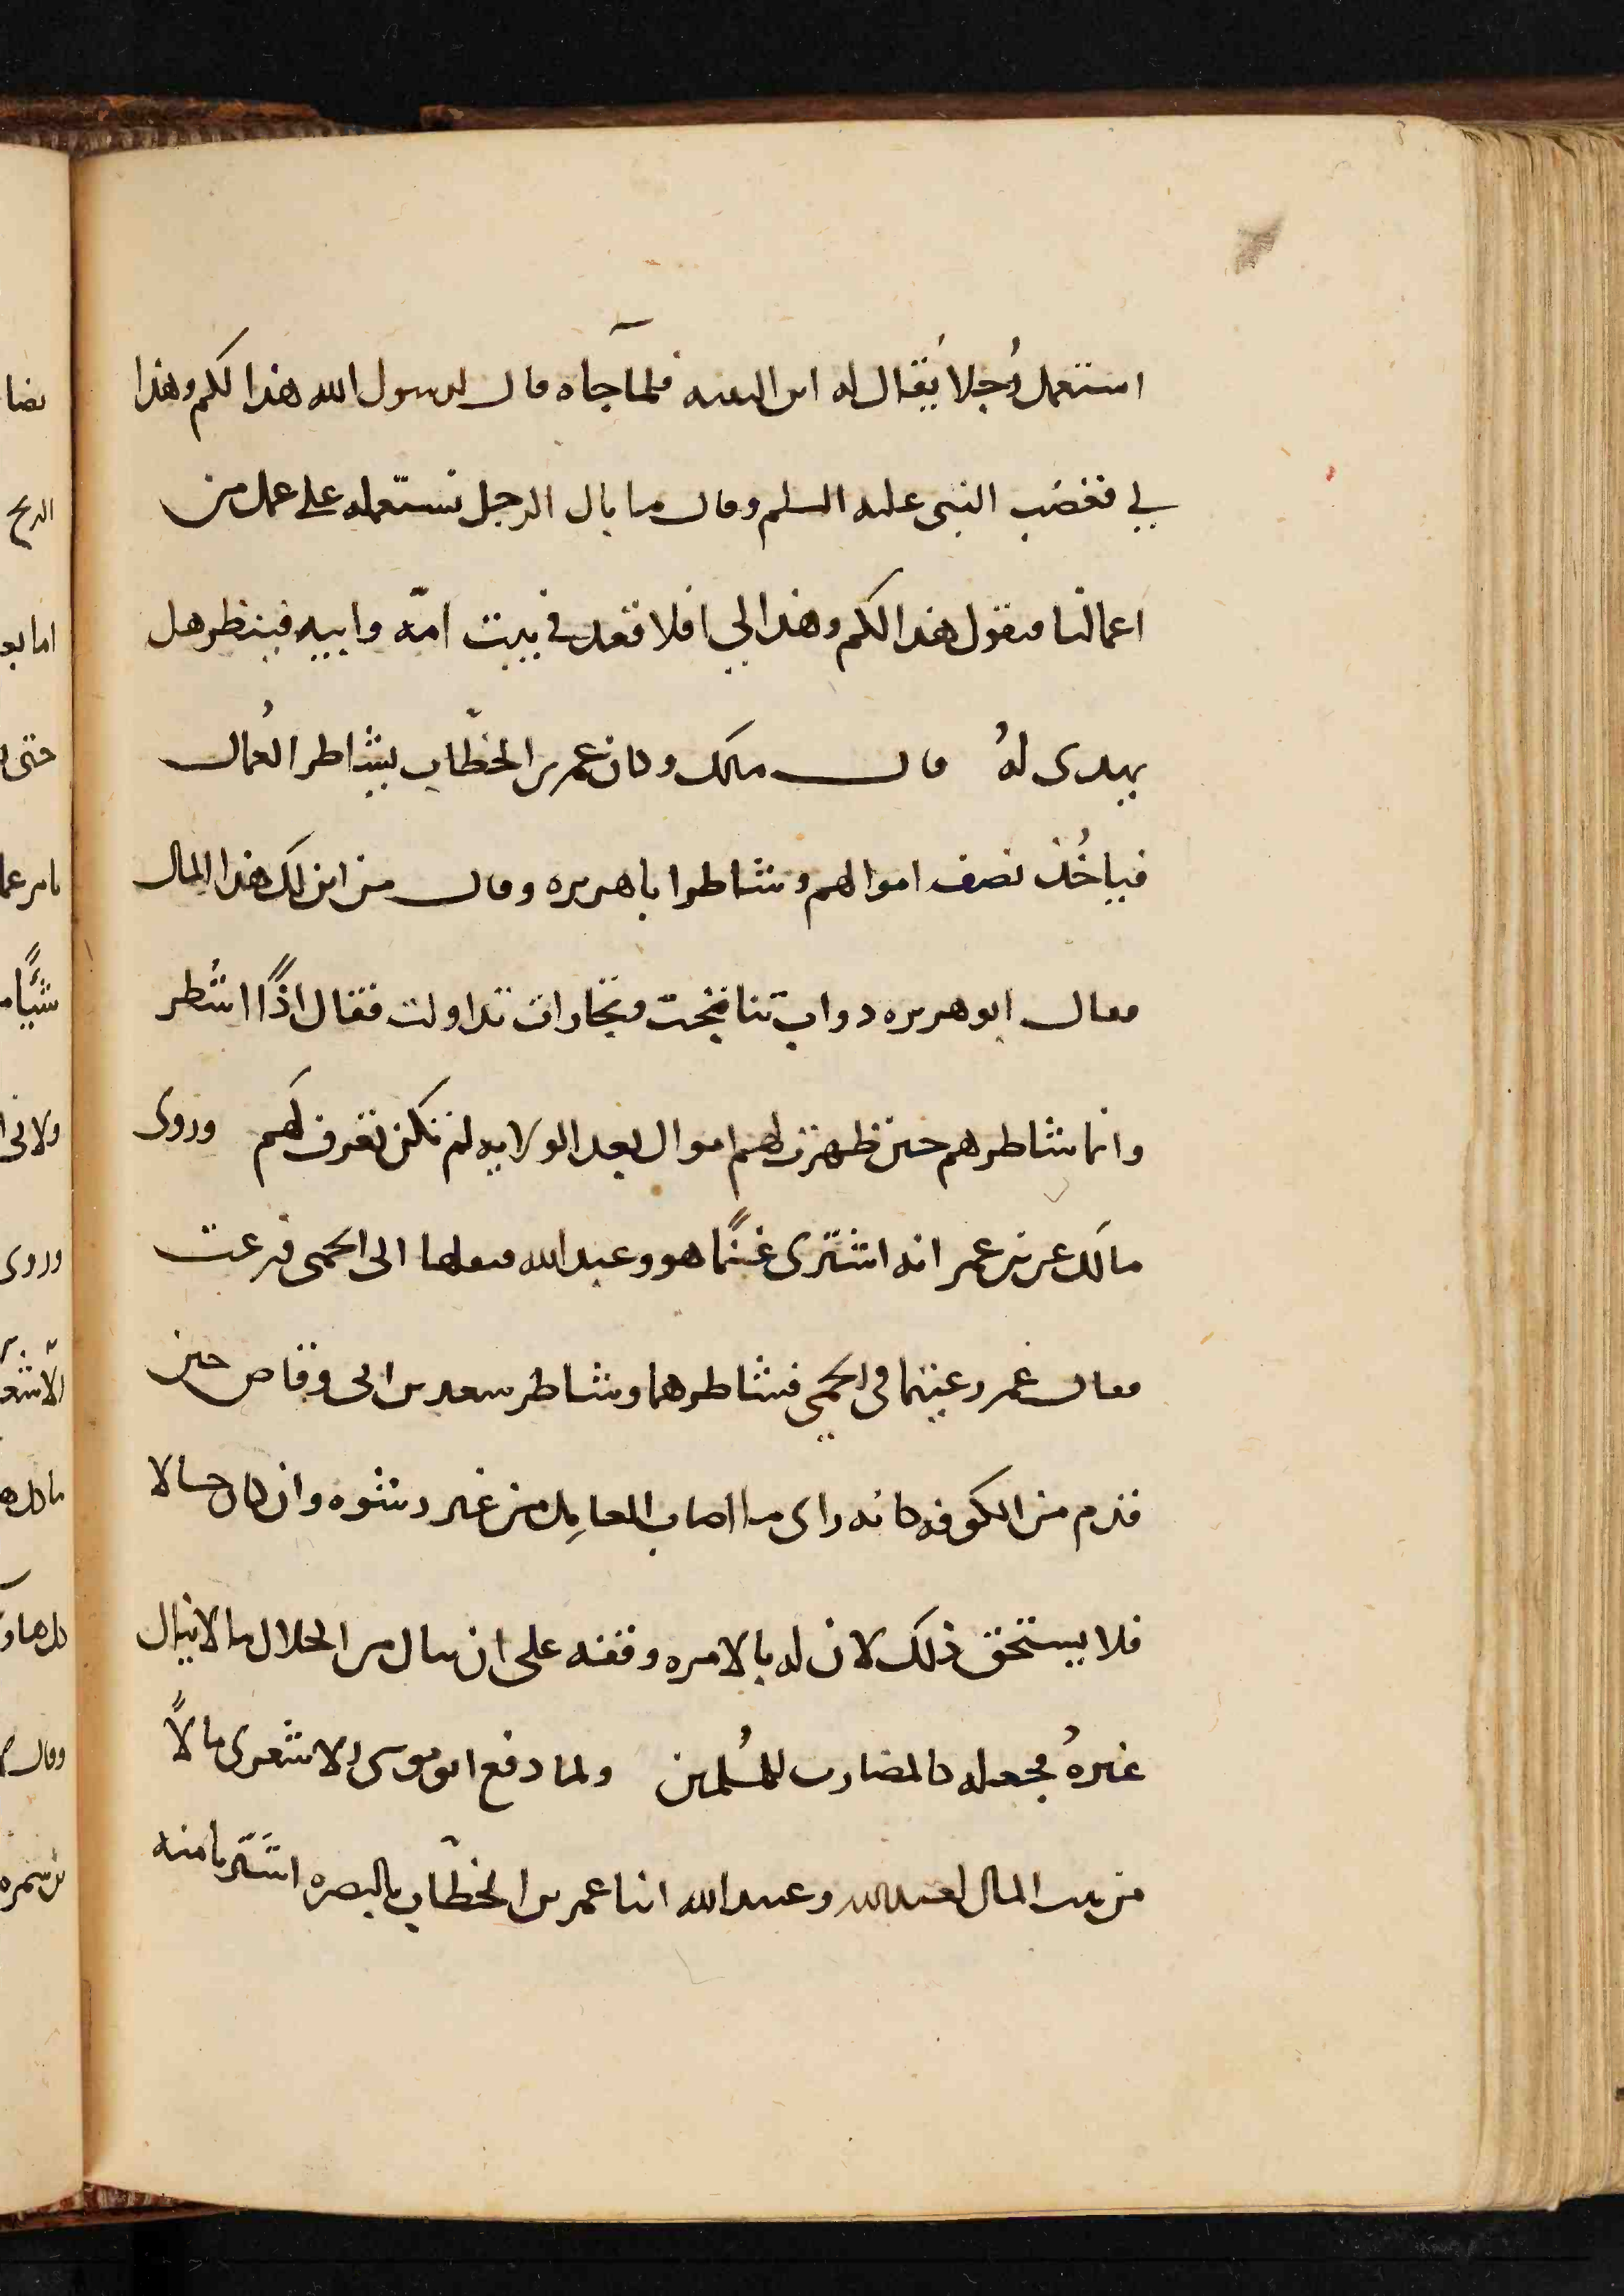 استعمل رُجلا يُقال له ابن اللتبيه فلمآ جاه قال لرسول الله هذا لكم وهذا
لي فغضب النبى عليه السلم وقال ما بال الرجل نستعمله على عمل من
اعمالنا فيقول هذا لكم وهذا لي افلا قعد في بيت امّه وابيه فينظر هل
يهدى لهُ قال ملك وكان عمر بن الخطّاب يشاطر العُمال
فياخُذ نصف اموالهم وشاطر ابا هريره وقال من اين لك هذا المال
فقال ابو هريره دواب تناتجت وتجارات تداولت فقال اذًا اشُطر
وانما شاطرهم حين ظهرت لهم اموال بعد الولايه لم تكن تعرف لهم وروى
مالك عن بن عمر انه اشترى غنمًا هو وعبد الله فبعثاها الى الحمى فرعت
فقال عُمر رعيتما في الحمى فشاطرهما وشاطر سعد بن ابى وقاص حين
قدم من الكوفه كانه راى ما اصاب العامِل من غير رشوه وان كان حلالا
فلا يستحق ذلك لان له بالامره وقفه على ان ينال من الحلال ما لا ينال
غيرهُ فجعله كالمضارب للمُسلمين ولما دفع ابو موسى الاشعرى مالاً
من بيت المال لعبد الله وعبيد الله ابنا عمر بن الخطّاب بالبصره اشتريا منه